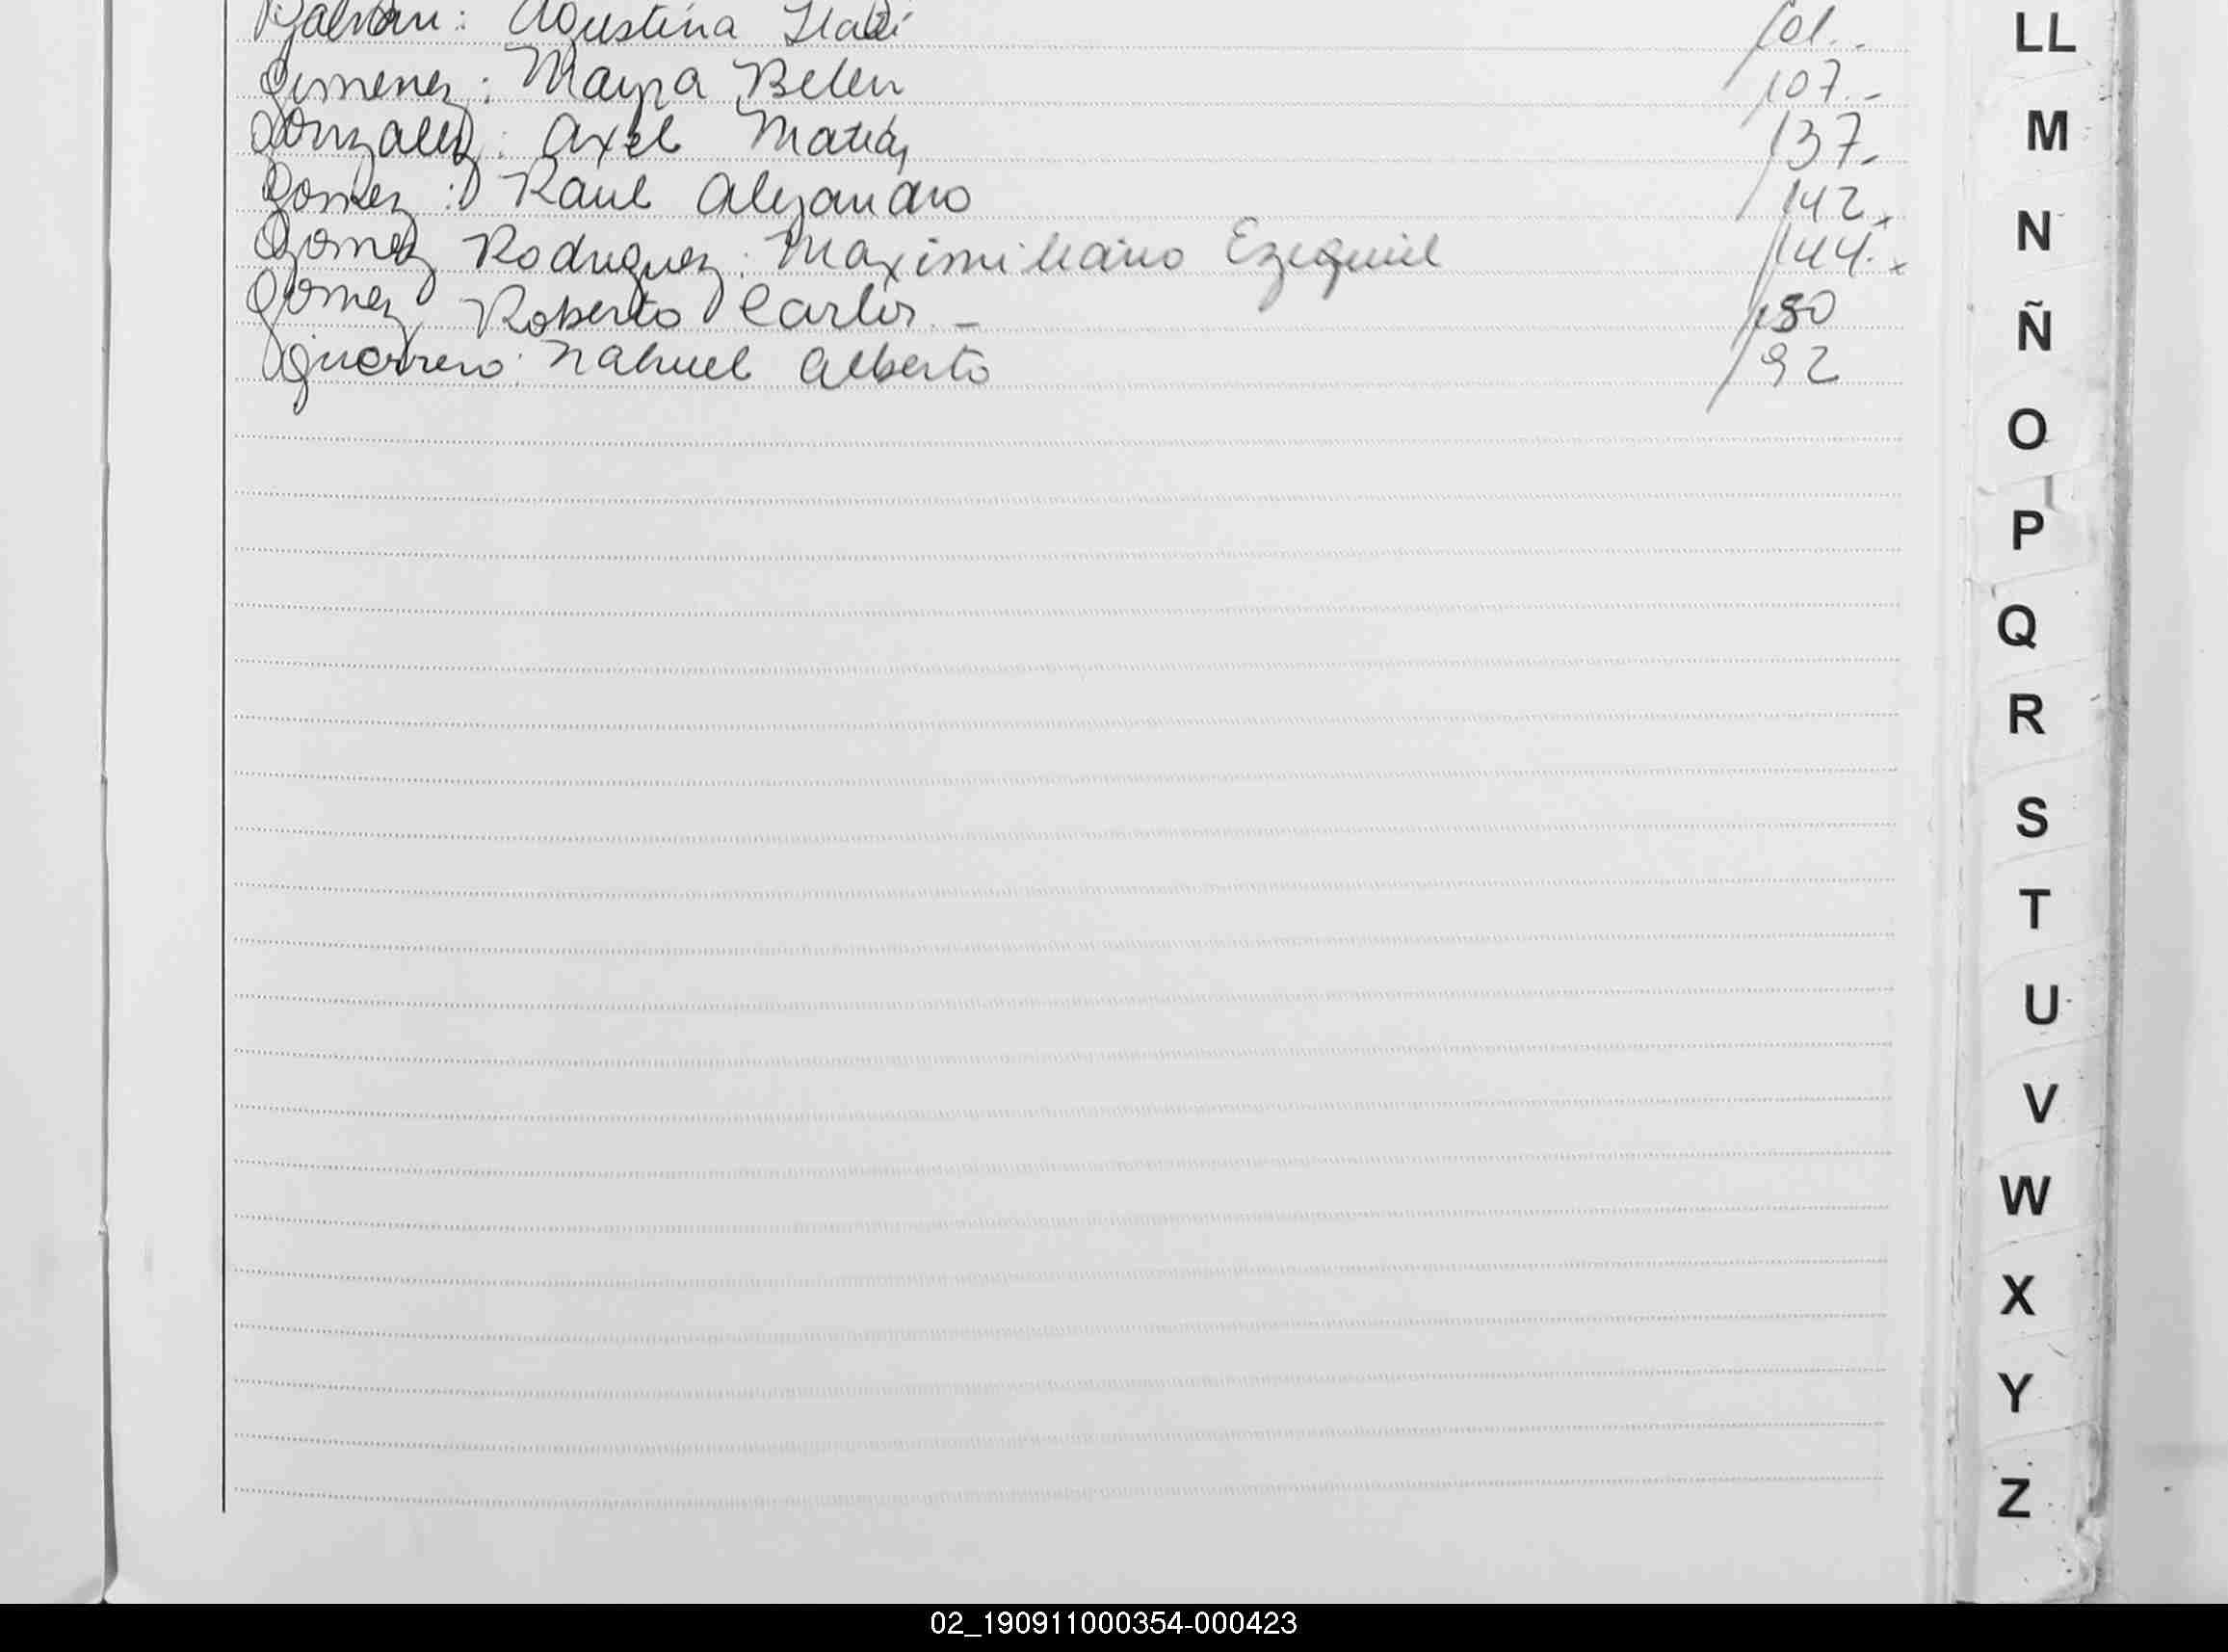 Galván: Agustina Itatí 101.-
Gimenez: Mayra Belen 107.-
Gonzalez: Axel Matías 137.-
Gomez: Raul Alejandro 142.
Gomez Rodriguez: Maximiliano Ezequiel 144.
Gomez Roberto Carlos.- 180
Guerrero: Nahuel Alberto 92
LL
M
N
Ñ
O
P
Q
R
S
T
U
V
W
X
Y
Z
02_190911000354-000423